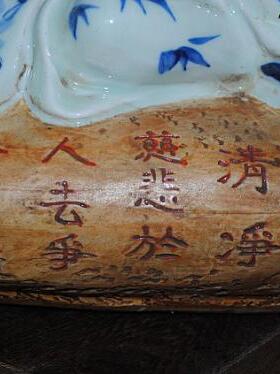 清淨
慈悲於
人去爭